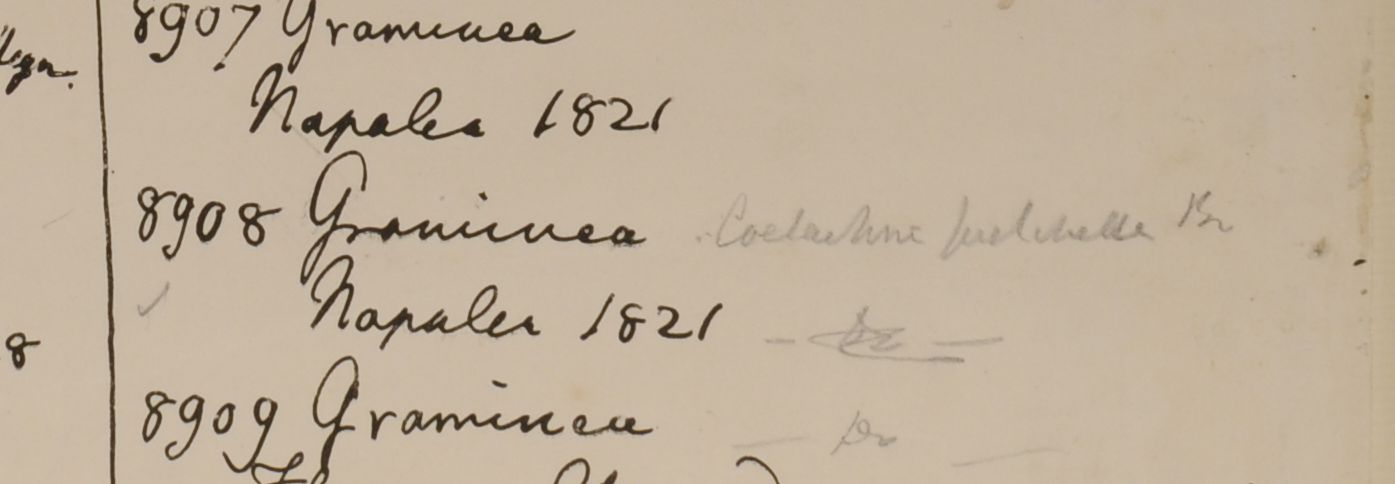 8907 Graminea
Napalea 1821
8908 Graminea Coelachne pulchella Br
Napalea 1821
8
8909 Graminea — Do —